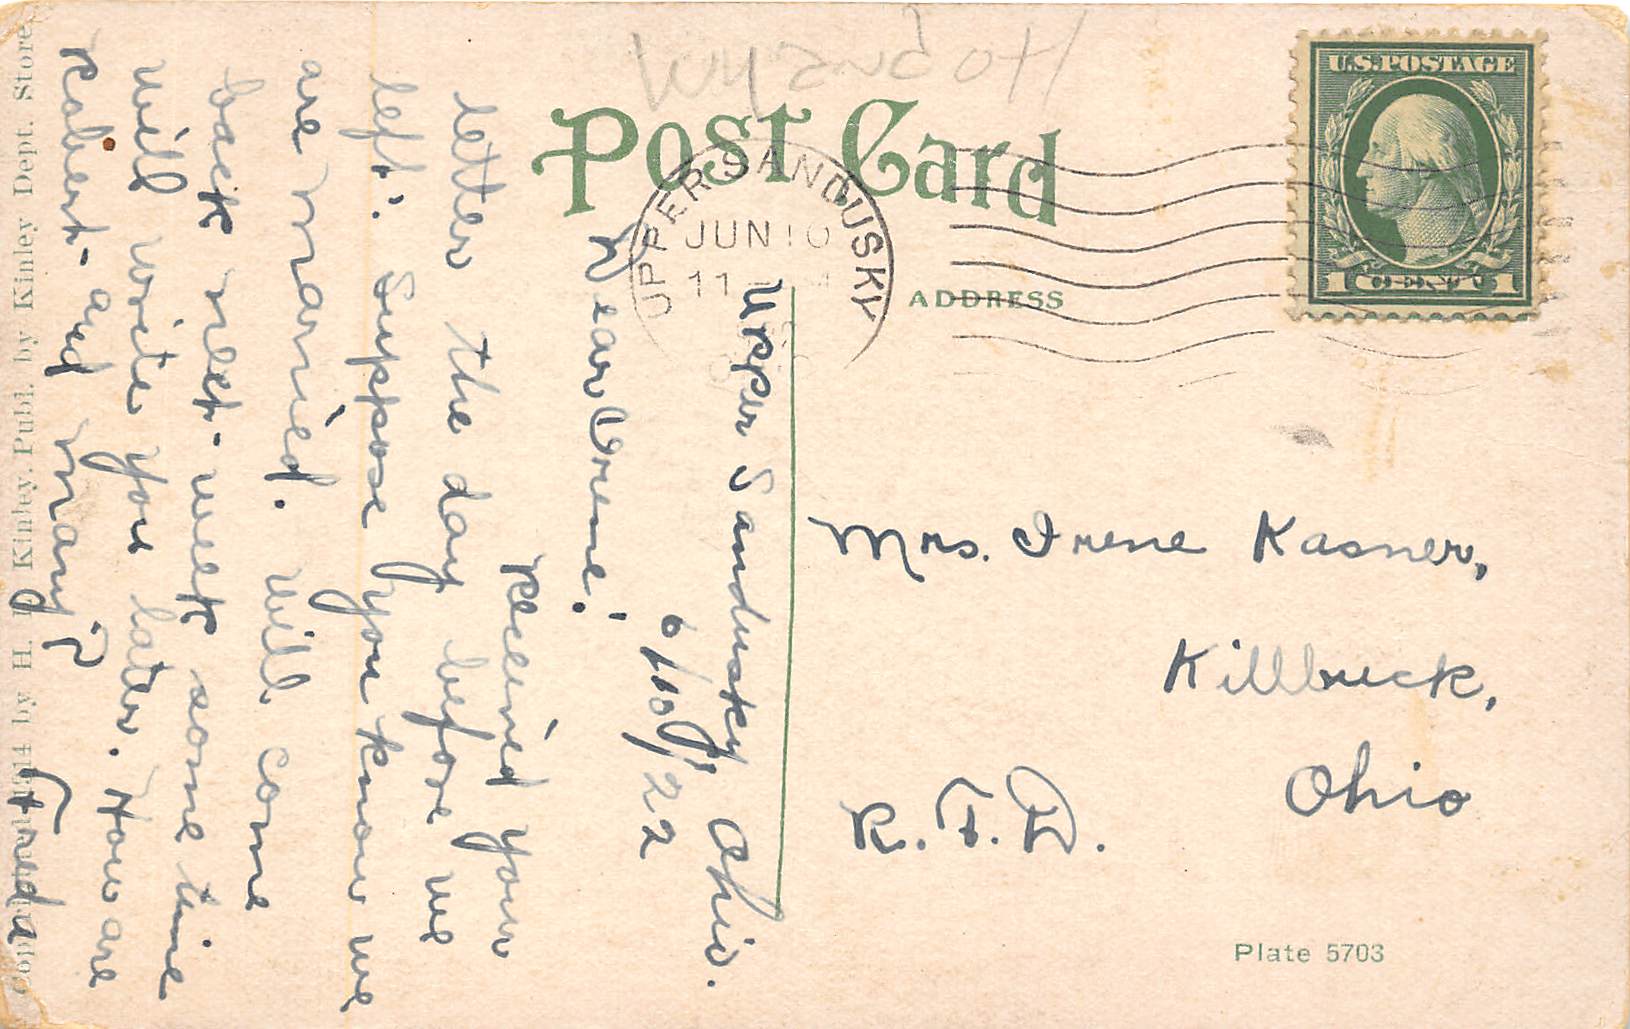 Wyandot
Post Card
U.S. POSTAGE
1 CENT 1
UPPER SANDUSKY
JUN 10
11
ADDRESS
Mrs. Irene Kasner,
Killbuck,
Ohio
R.F.D.
Plate 5703
Upper Sandusky, Ohio.
6/10/22
Dear Irene!
Received your
letter the day before we
left. Suppose you know we
are married. Will come
back next week some time
will write you later. How are
Robert and Mary?
Freda
1914 by H. E. Kinley. Publ. by Kinley Dept. Store,